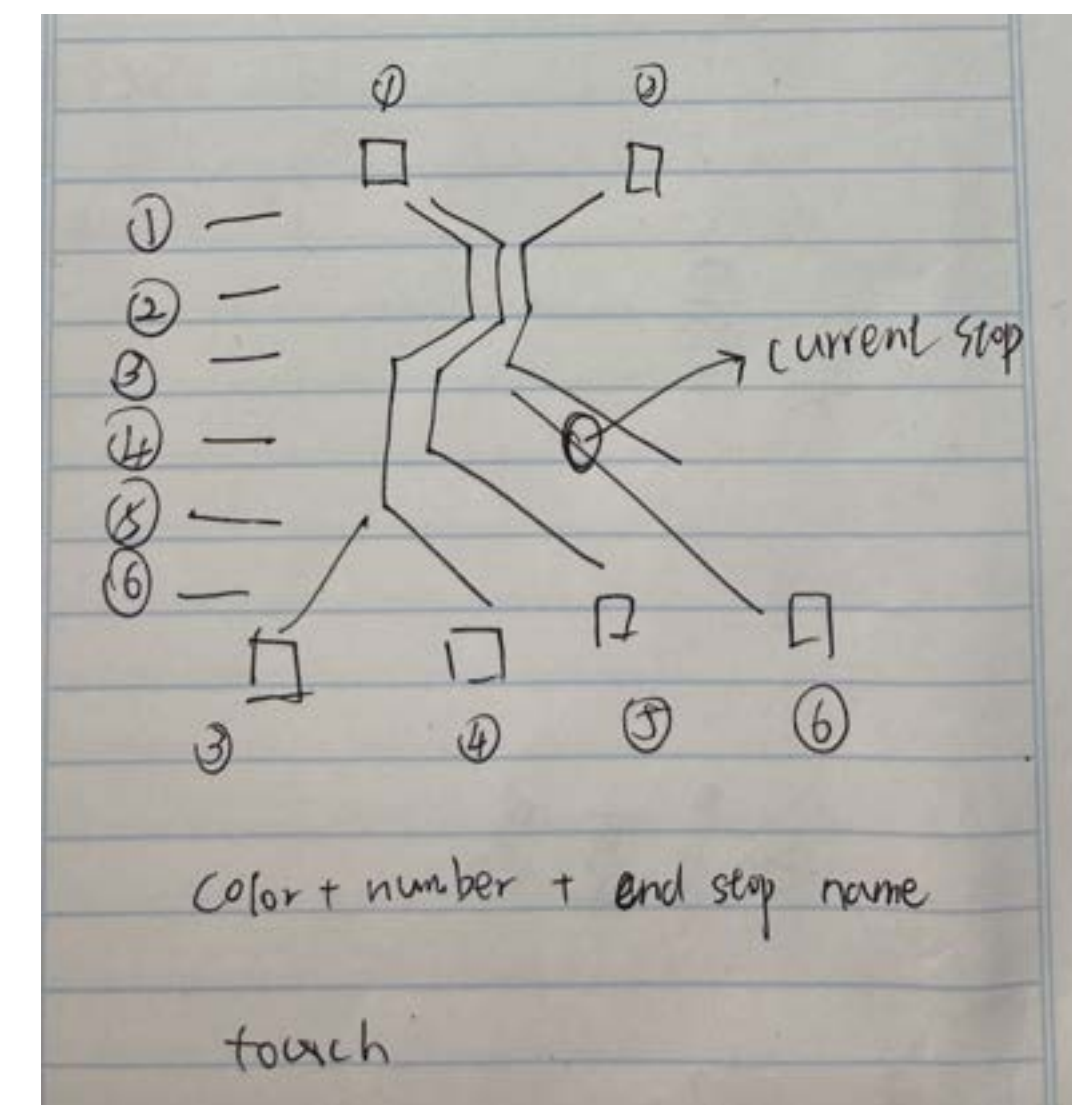 ① ②
①
②
③
current stop
④
⑤
⑥
③ ④ ⑤ ⑥
Color + number + end stop name
touch